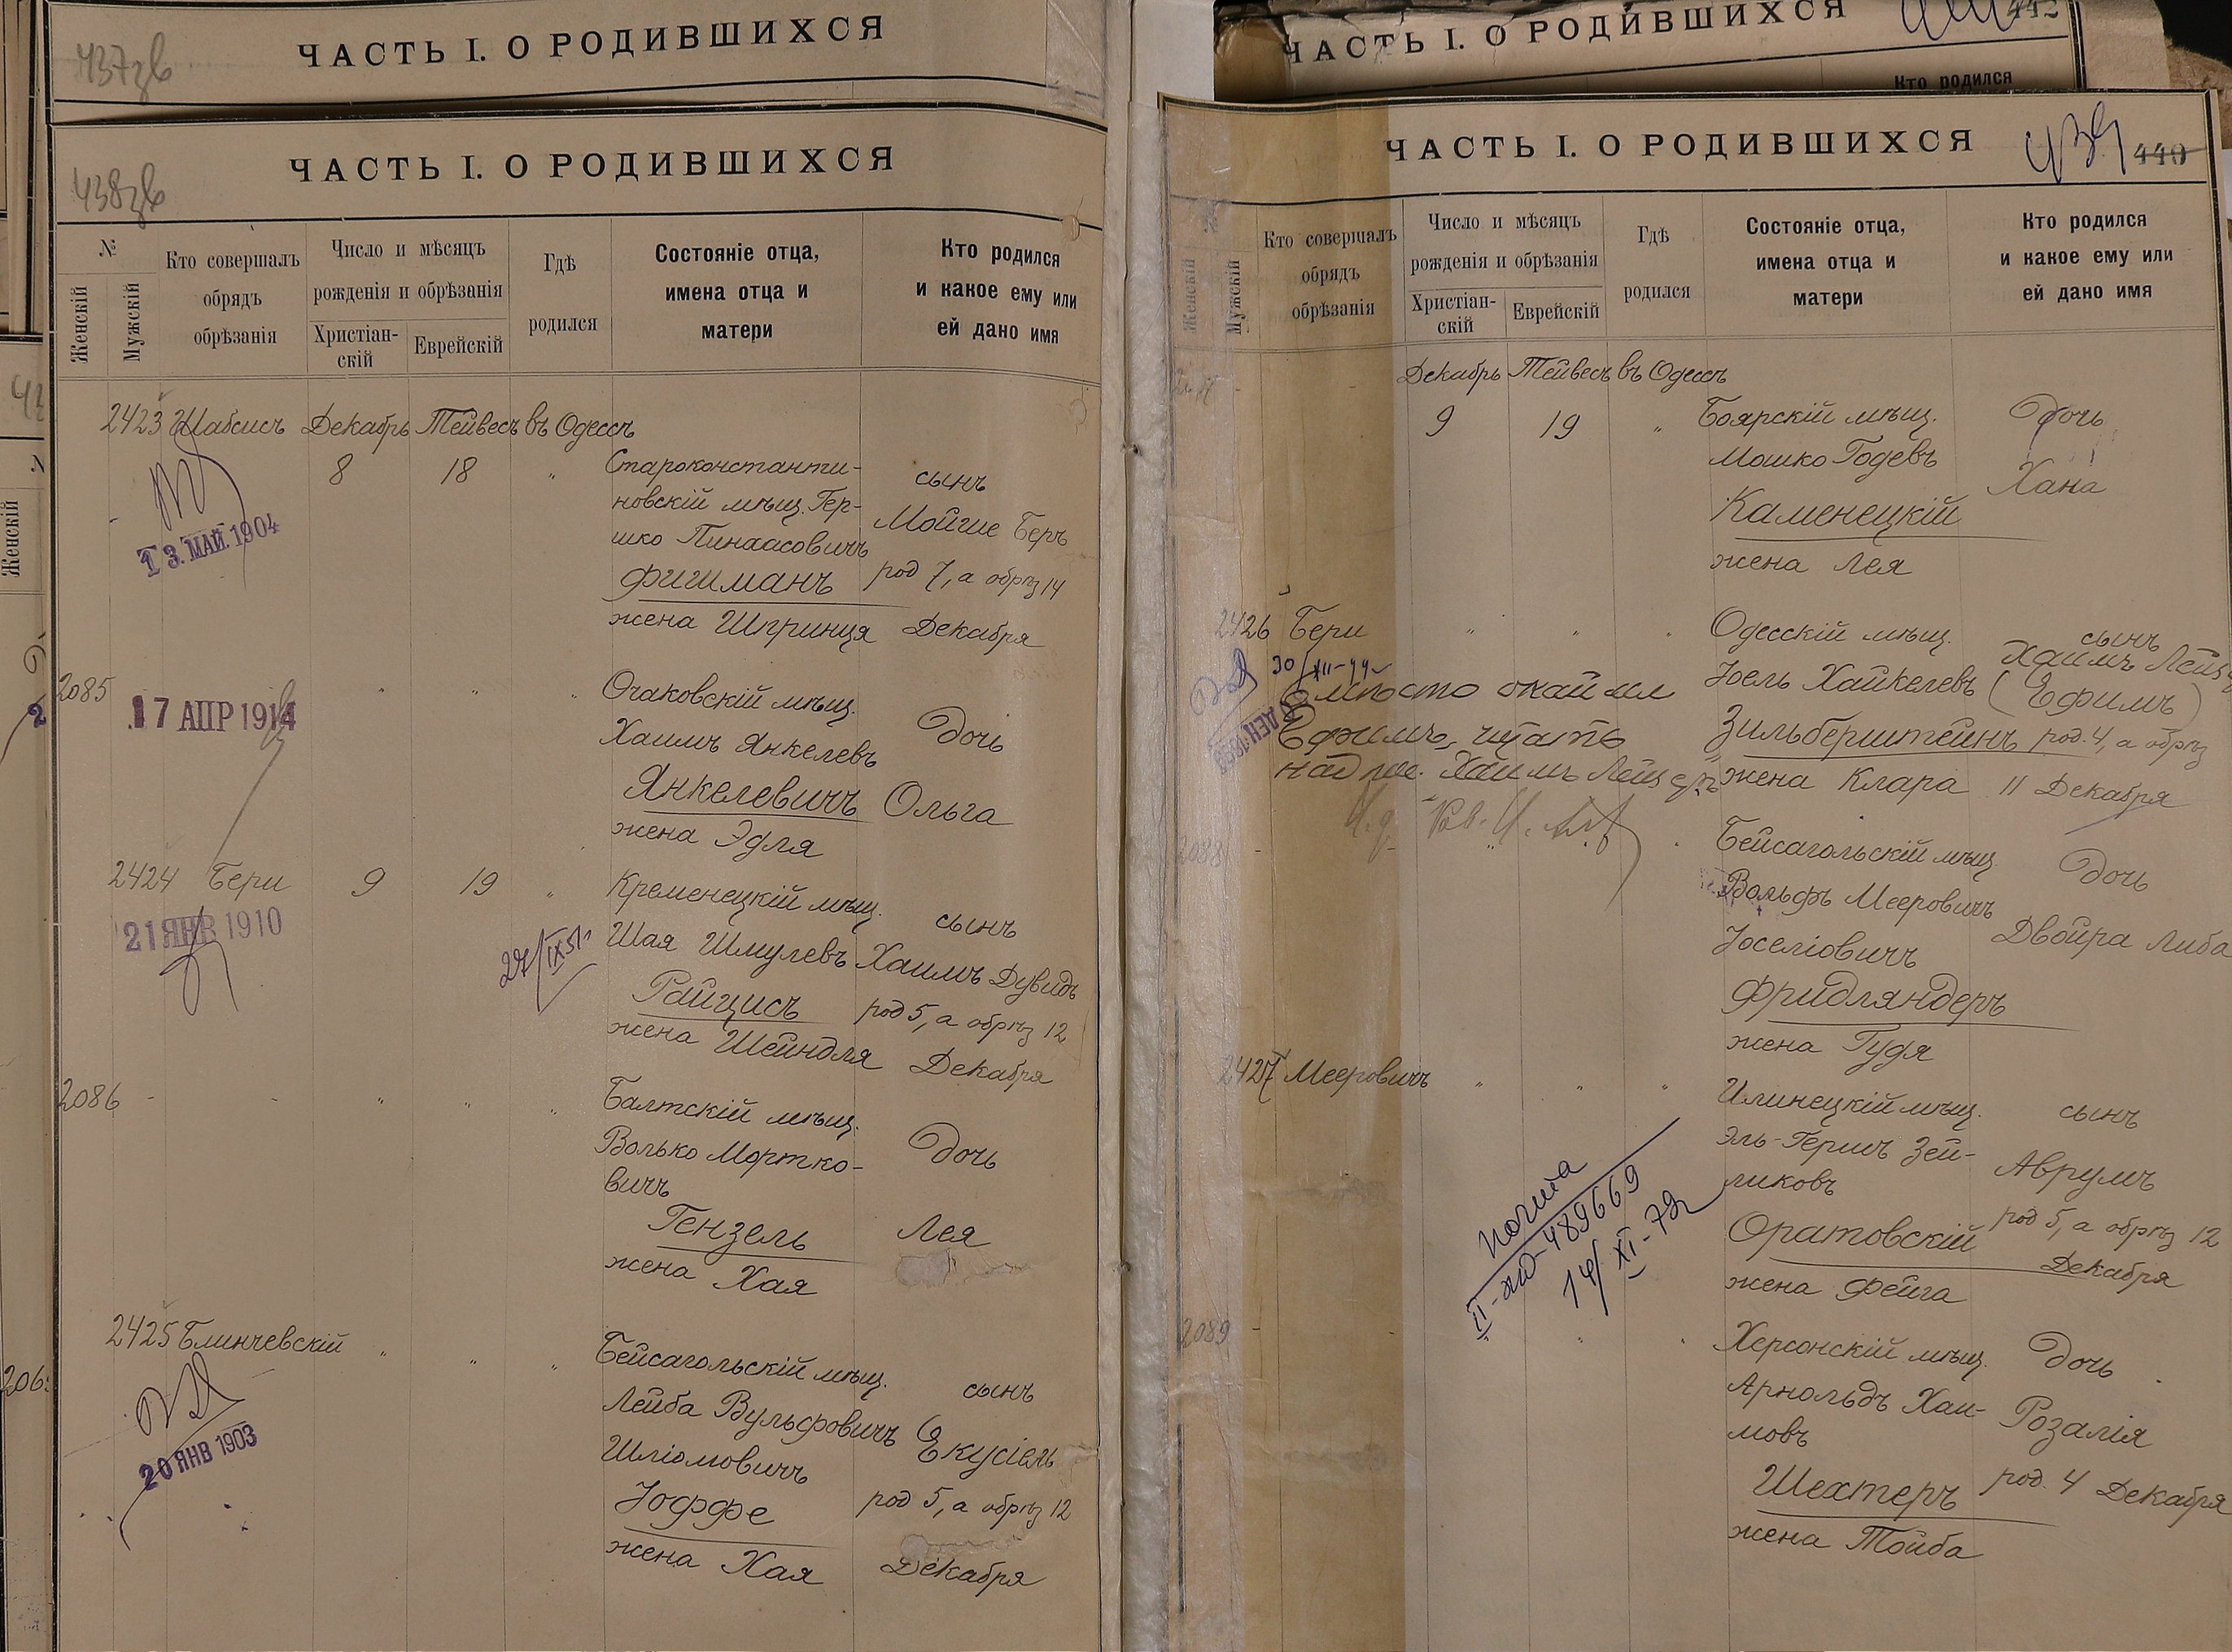 437 зв
ЧАСТЬ I. О РОДИВШИХСЯ
438 зв
ЧАСТЬ I. О РОДИВШИХСЯ
№
Женскій
Мужскій
Кто совершалъ
обрядъ
обрѣзанія
Число и мѣсяцъ
рожденія и обрѣзанія
Христіан-
скій
Еврейскій
Гдѣ
родился
Состояніе отца,
имена отца и
матери
Кто родился
и какое ему или
ей дано имя
2423 Шабсисъ Декабрь Тейвесъ въ Одессѣ
8 18 " Староконстанти-
новскій мѣщ. Гер-
шко Пинхасовичъ
Фишманъ
жена Шпринця
сынъ
Мойше Беръ
род 7, а обрѣз 14
Декабря
13. МАЙ. 1904
2085 " " " Очаковскій мѣщ.
Хаимъ Янкелевъ
Янкелевичъ
жена Эдля
Дочь
Ольга
17 АПР 1914
2424 Бери 9 19 " Кременецкій мѣщ.
Шая Шмулевъ
Райцисъ
жена Шейндля
сынъ
Хаимъ Дувидъ
род 5, а обрѣз 12
Декабря
21 ЯНВ 1910
27/IX 51
2086 - - " " " Балтскій мѣщ.
Волько Мортко-
вичъ
Гензель
жена Хая
Дочь
Лея
2425 Блинчевскій " " " Бейсагольскій мѣщ.
Лейба Вульфовичъ
Шліомовичъ
Іоффе
жена Хая
сынъ
Екусіель
род 5, а обрѣз 12
Декабря
20 ЯНВ 1903
ЧАСТЬ I. О РОДИВШИХСЯ
442
Кто родился
ЧАСТЬ I. О РОДИВШИХСЯ
439 440
Женскій
Мужскій
Кто совершалъ
обрядъ
обрѣзанія
Число и мѣсяцъ
рожденія и обрѣзанія
Христіан-
скій
Еврейскій
Гдѣ
родился
Состояніе отца,
имена отца и
матери
Кто родился
и какое ему или
ей дано имя
Декабрь Тейвесъ въ Одессѣ
9 19 " Боярскій мѣщ.
Мошко Годевъ
Каменецкій
жена Лея
Дочь
Хана
2426 Бери " " " Одесскій мѣщ.
Іоель Хайкелевъ
Зильберштейнъ
жена Клара
сынъ
Хаимъ Лейзеръ
(Ефимъ)
род. 4, а обрѣз
11 Декабря
30/XII-44
Ефимъ, читать
надпис. Хаимъ Лейзеръ
2088 - " " Бейсагольскій мѣщ.
Вольфъ Мееровичъ
Іоселіовичъ
Фридляндеръ
жена Гудя
Дочь
Двойра Либа
2427 Мееровичъ " " " Илинецкій мѣщ.
Эль-Гершъ Зей-
ликовъ
Оратовскій
жена Фейга
сынъ
Аврумъ
род 5, а обрѣз 12
Декабря
почта
II-ЖД-489669
14/XI-72
2089 - " " Херсонскій мѣщ.
Арнольдъ Хаи-
мовъ
Шехтеръ
жена Тойба
Дочь
Розалія
род. 4 Декабря